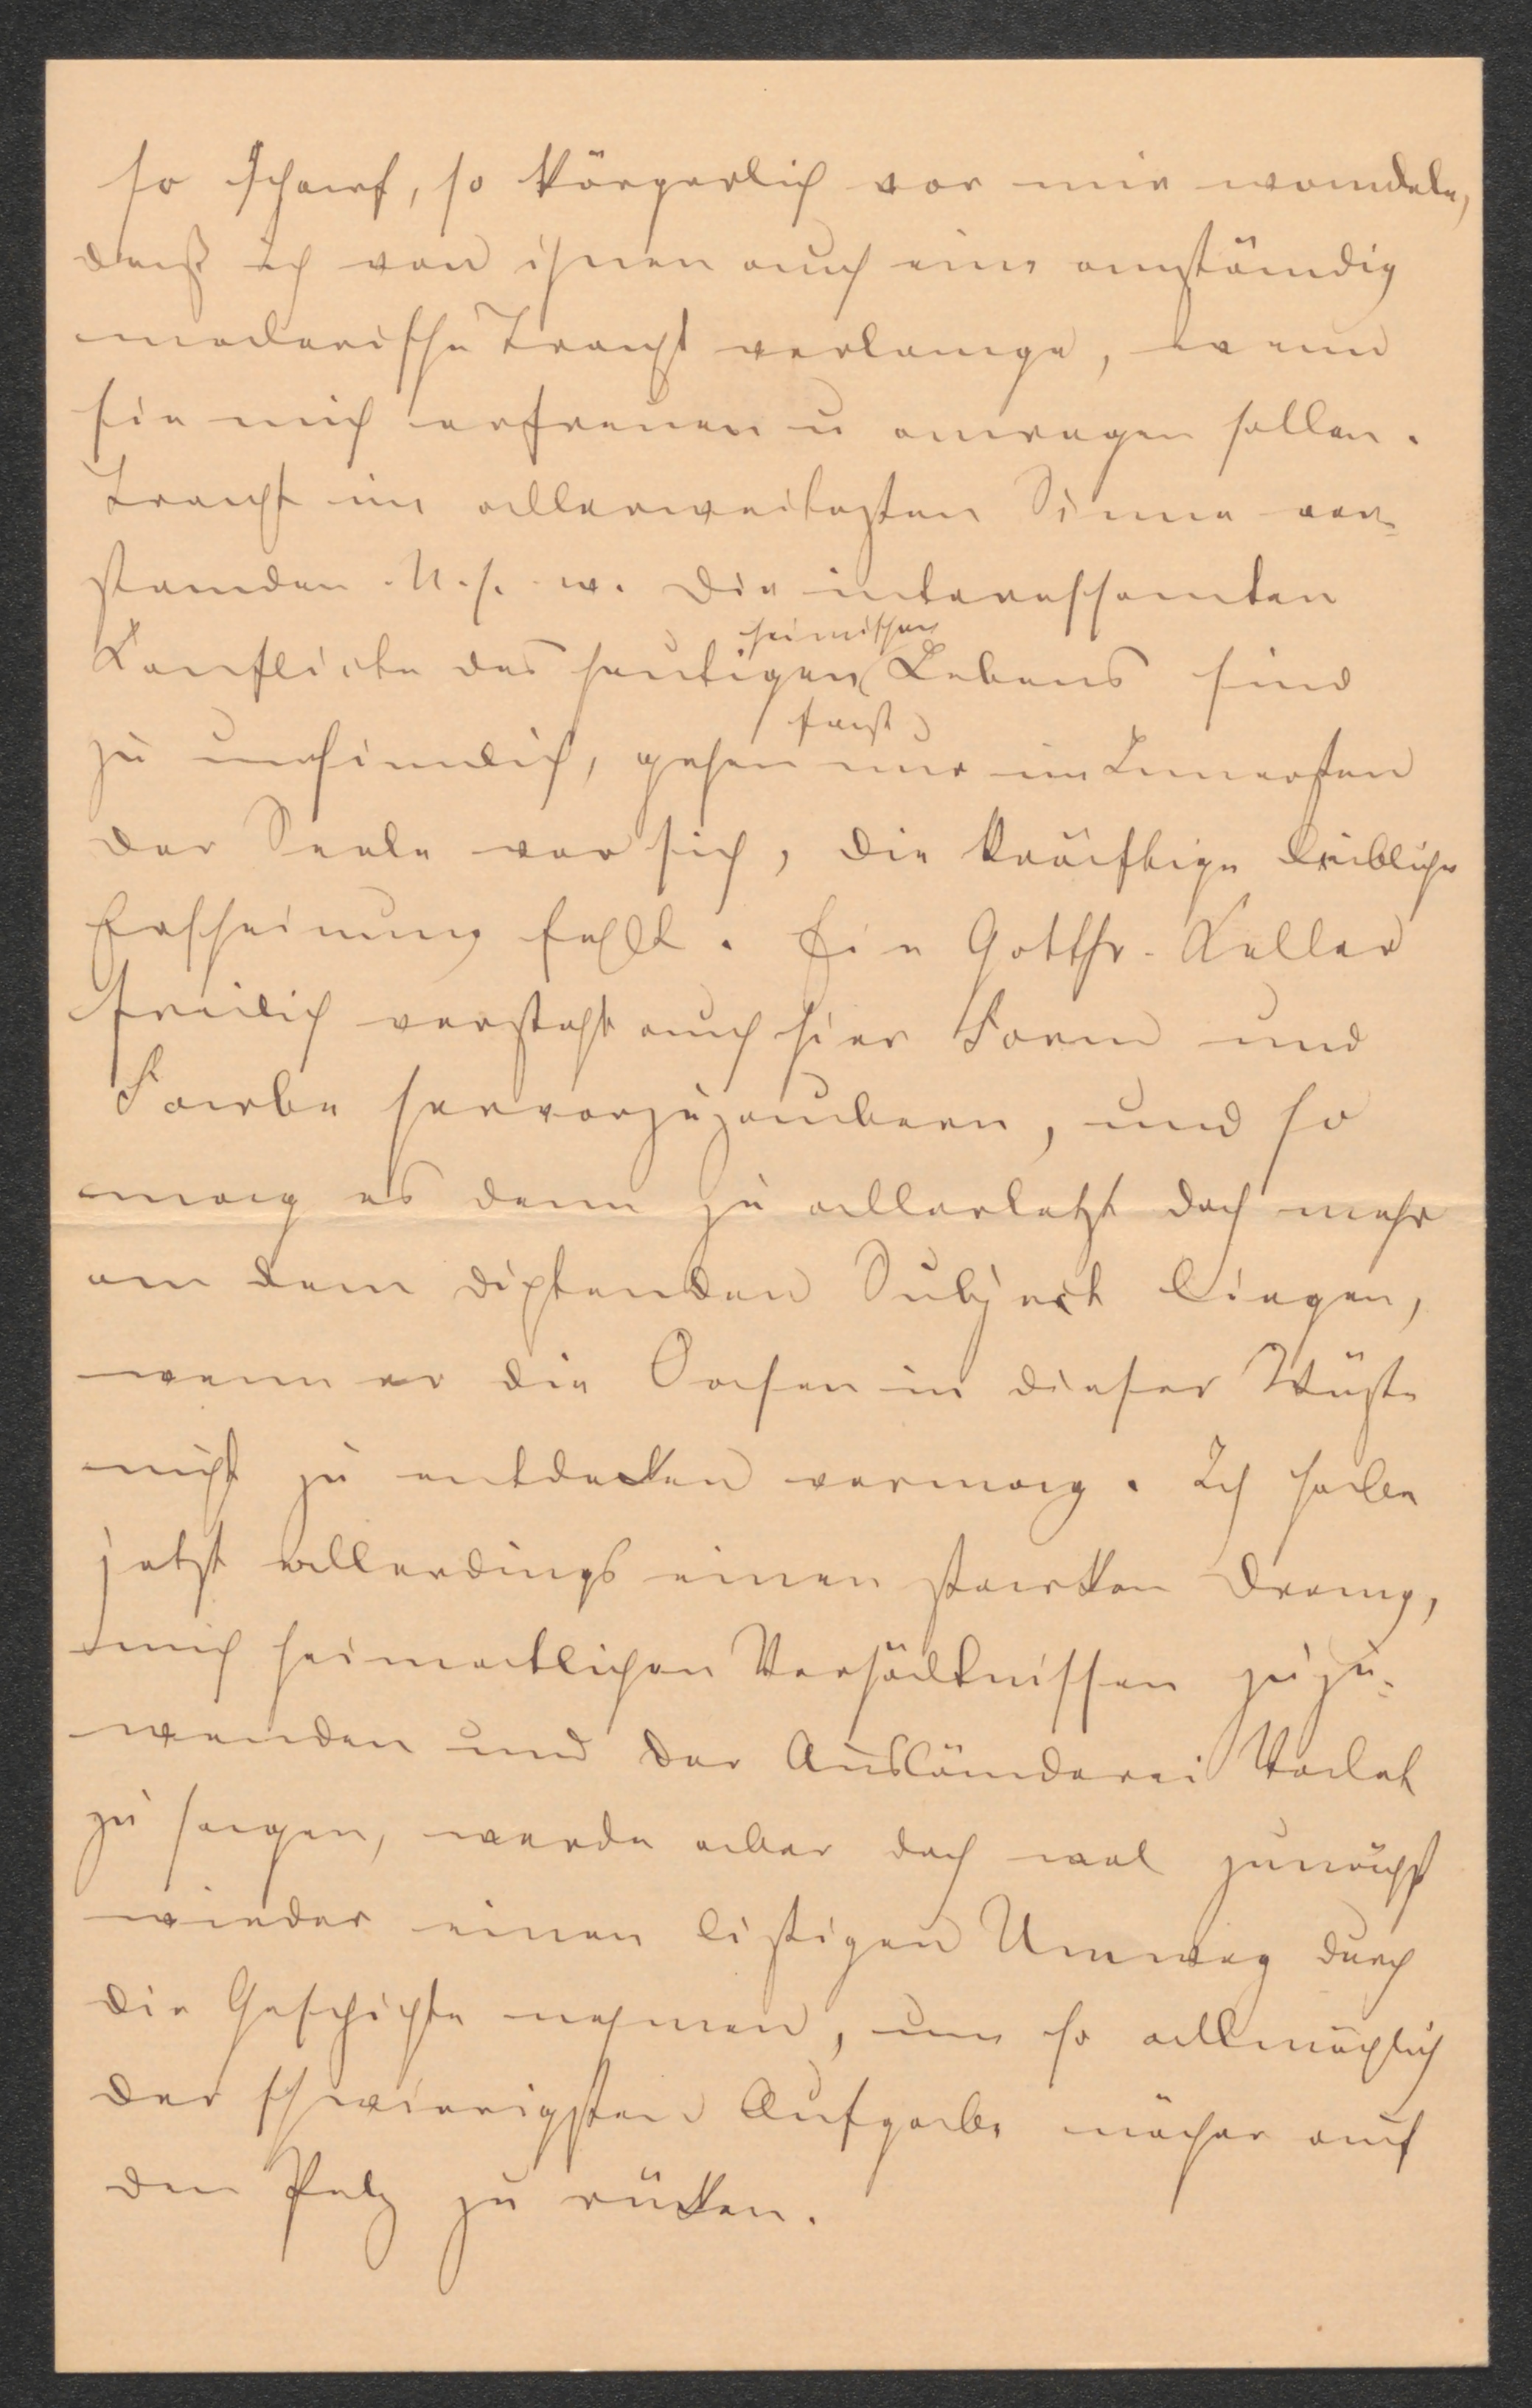 so scharf, so körperlich vor mir wandeln,
daß ich von ihnen auch eine anständig
malerische Tracht verlange, wenn
sie mich erfreuen u anregen sollen.
Tracht im allerweitesten Sinne ver-
standen. U. s. w. Die interessanten
Konflickte des heutigen heimischen Lebens sind
zu unsinnlich, gehen fast nur im Innersten
der Seele vor sich, die kräftige leibliche
Erscheinung fehlt. Ein Gottfr. Keller
freilich versteht auch hier Form und
Farbe hervorzuzaubern, und so
mag es denn zu allerletzt doch mehr
an dem dichtenden Subject liegen,
wenn er die Oasen in dieser Wüste
nicht zu entdecken vermag. Ich habe
jetzt allerdings einen starken Drang,
mich heimatlichen Verhältnissen zuzu-
wenden und der Ausländerei Valet
zu sagen, werde aber doch wol zunächst
wieder einen listigen Umweg durch
die Geschichte nehmen, um so allmächlich
der schwierigsten Aufgabe näher auf
den Pelz zu rücken.